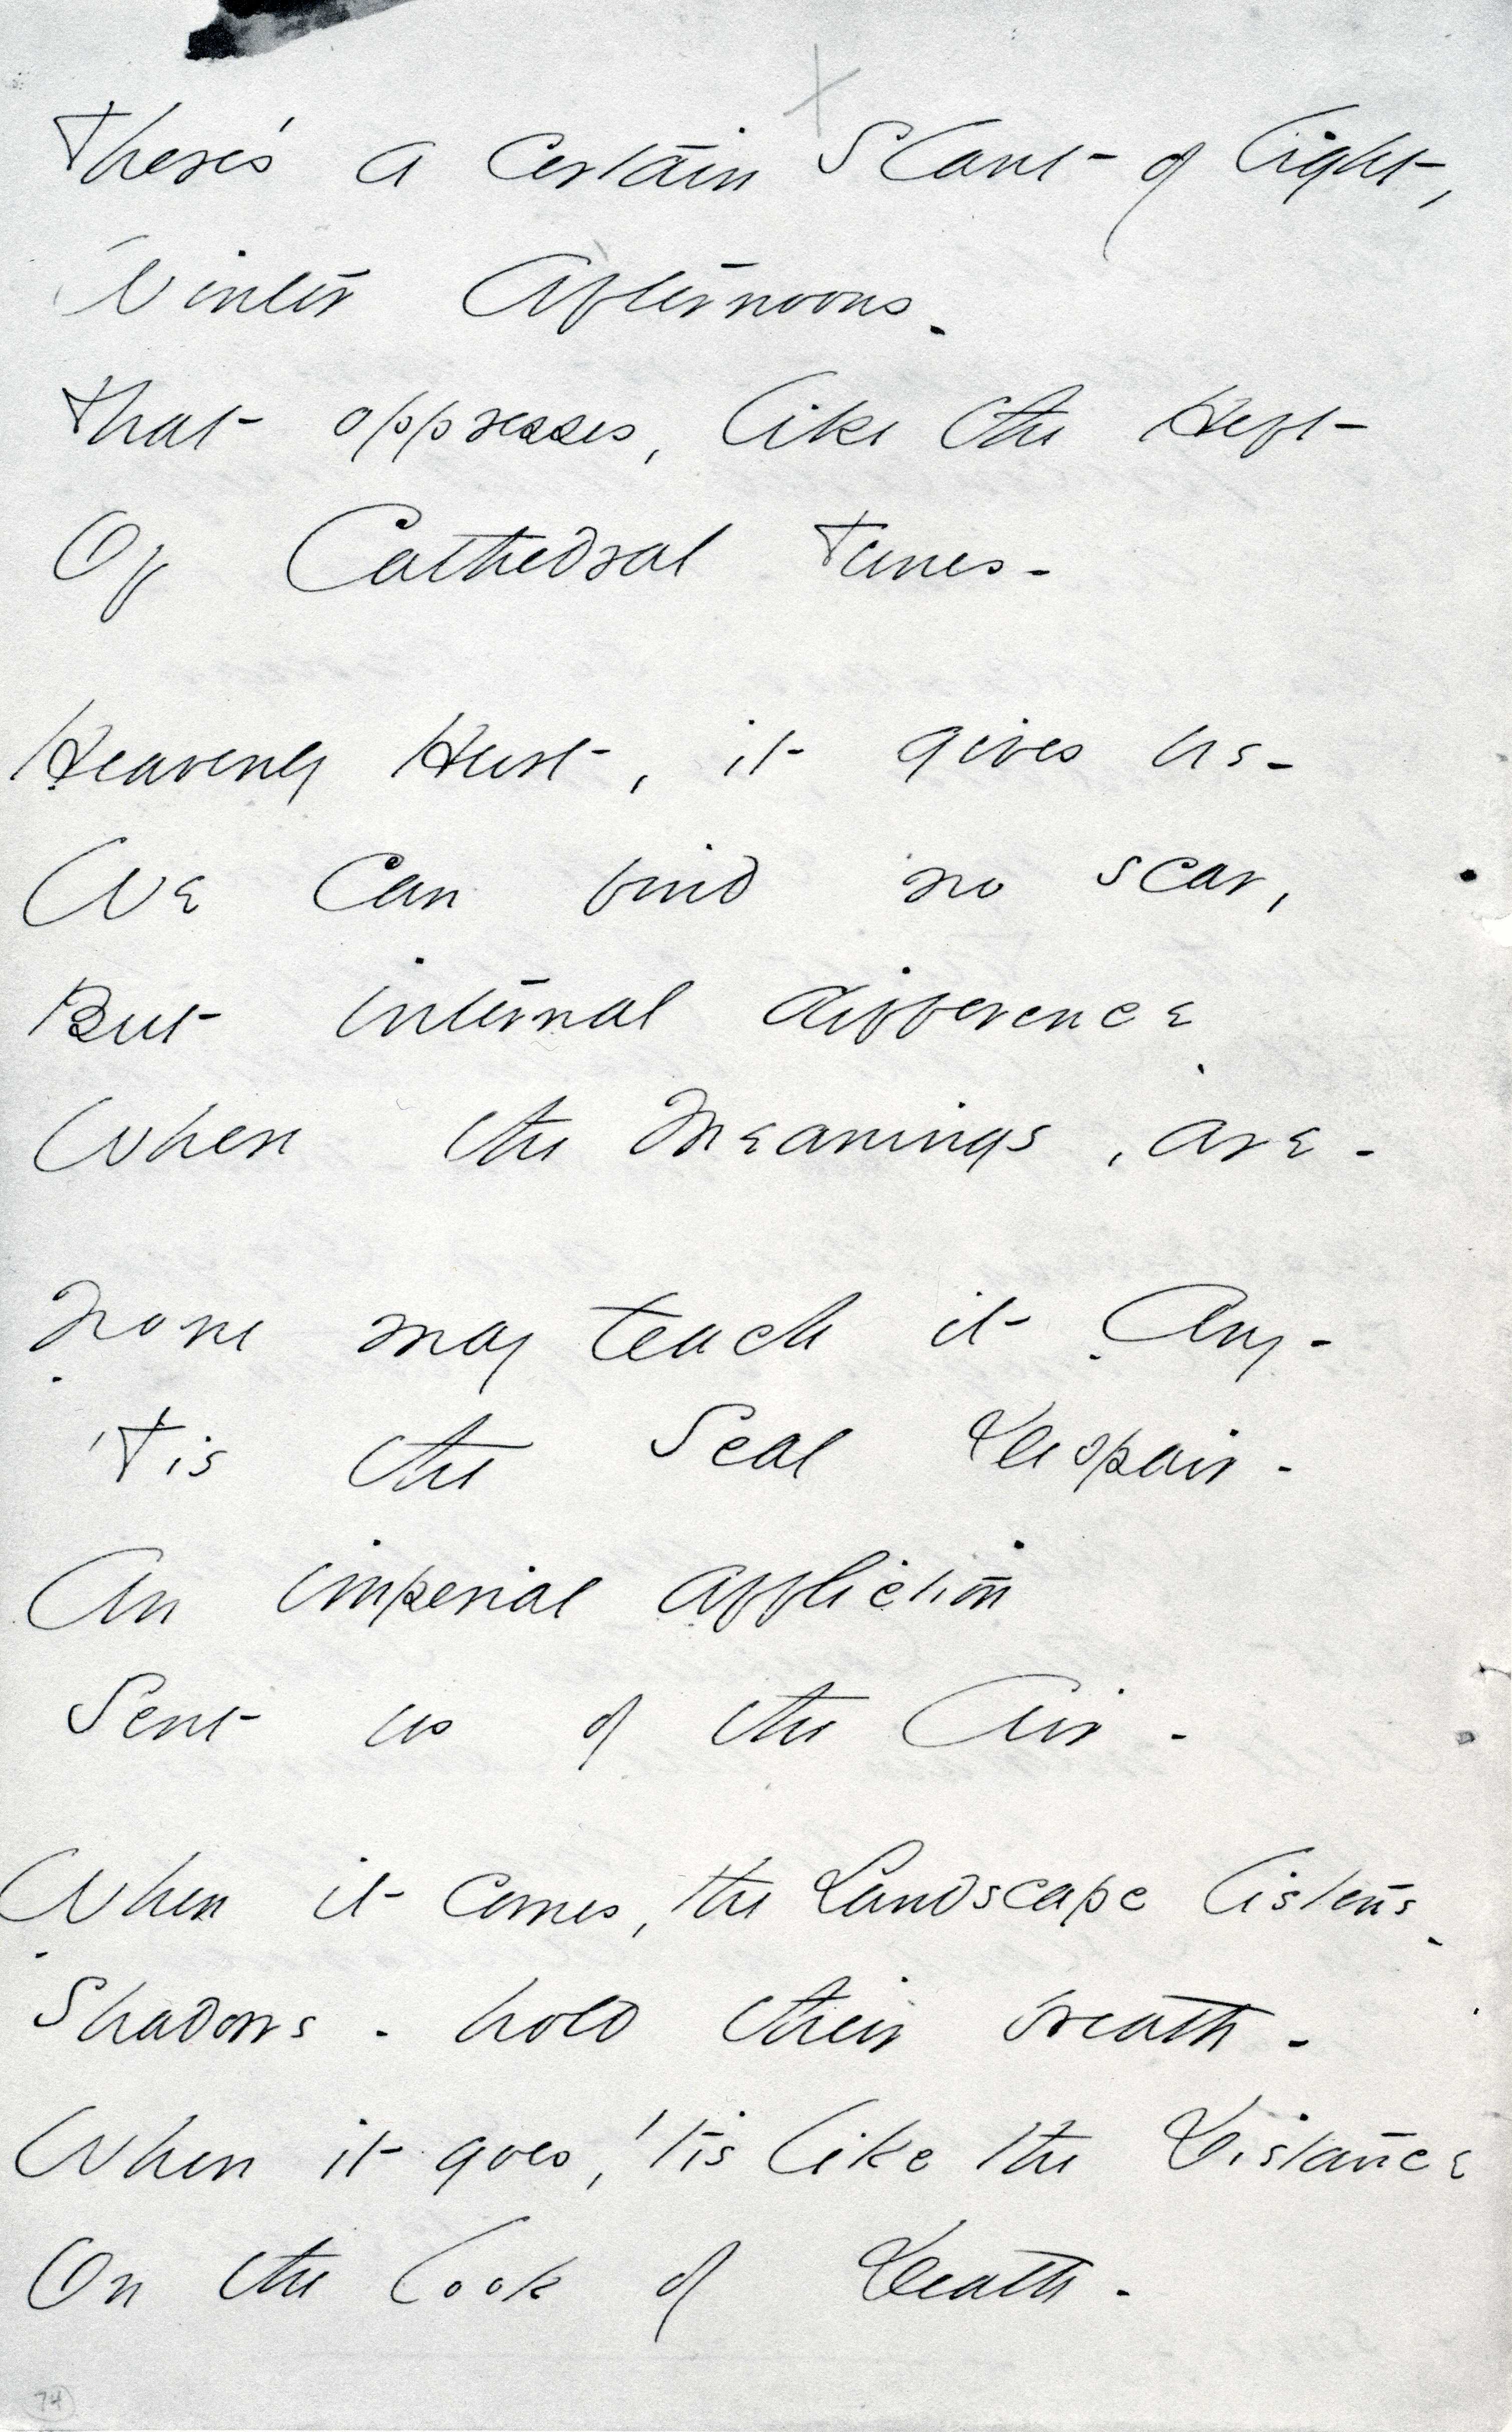 There's a certain Slant of light,
Winter Afternoons -
That oppresses, like the Heft
Of Cathedral Tunes -
Heavenly Hurt, it gives us -
We can find no scar,
But internal difference
When the Meanings, are -
None may teach it - Any -
'Tis the Seal Despair -
An imperial affliction
Sent us of the Air -
When it comes, the Landscape listens -
Shadows - hold their breath -
When it goes, 'tis like the Distance
On the look of Death -
74